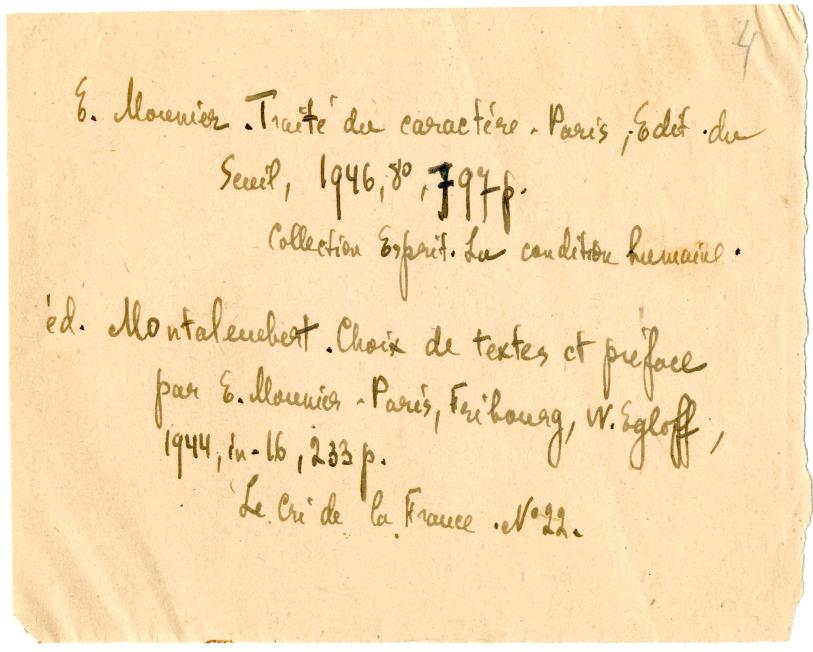 4
E. Mounier. Traité du caractère. Paris, Edit. du
Seuil, 1946, 8º, 797 p.
Collection Esprit. La condition humaine.
éd. Montalembert. Choix de textes et préface
par E. Mounier. Paris, Fribourg, W. Egloff,
1944, in-16, 233 p.
Le Cri de la France. Nº 22.